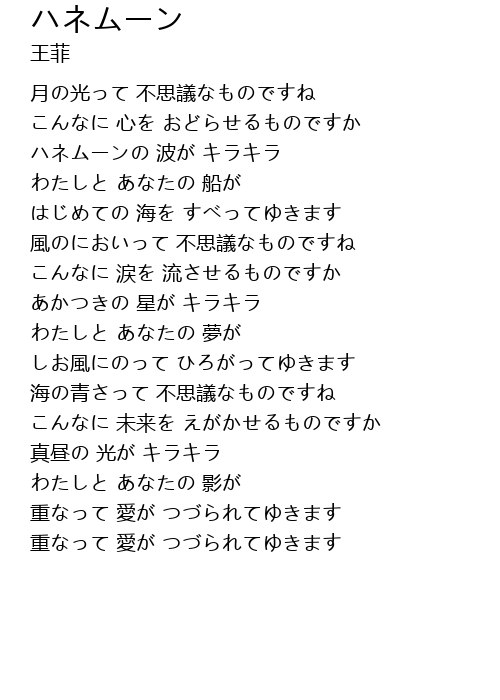 ハネムーン
王菲
月の光って 不思議なものですね
こんなに 心を おどらせるものですか
ハネムーンの 波が キラキラ
わたしと あなたの 船が
はじめての 海を すべってゆきます
風のにおいって 不思議なものですね
こんなに 涙を 流させるものですか
あかつきの 星が キラキラ
わたしと あなたの 夢が
しお風にのって ひろがってゆきます
海の青さって 不思議なものですね
こんなに 未来を えがかせるものですか
真昼の 光が キラキラ
わたしと あなたの 影が
重なって 愛が つづられてゆきます
重なって 愛が つづられてゆきます